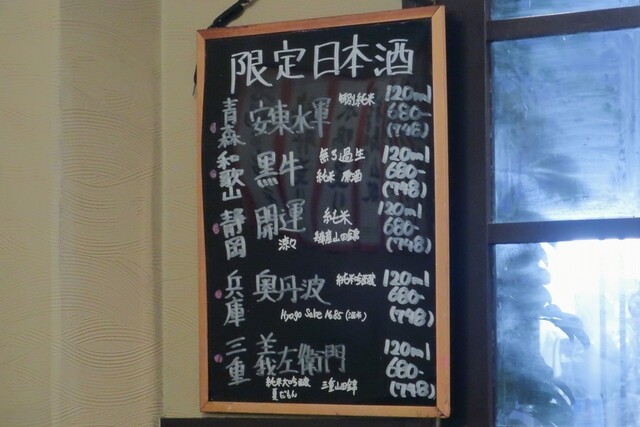 限定日本酒
青森 安東水軍 特別純米 120ml 680- (748)
和歌山 黒牛 無ろ過生 純米 原酒 120ml 680- (748)
静岡 開運 純米 120ml 680- (748)
兵庫 奥丹波 120ml 680- (748)
Hyogo Sake 1685
三重 義左衛門 純米大吟醸 三重山田錦 120ml 680- (748)